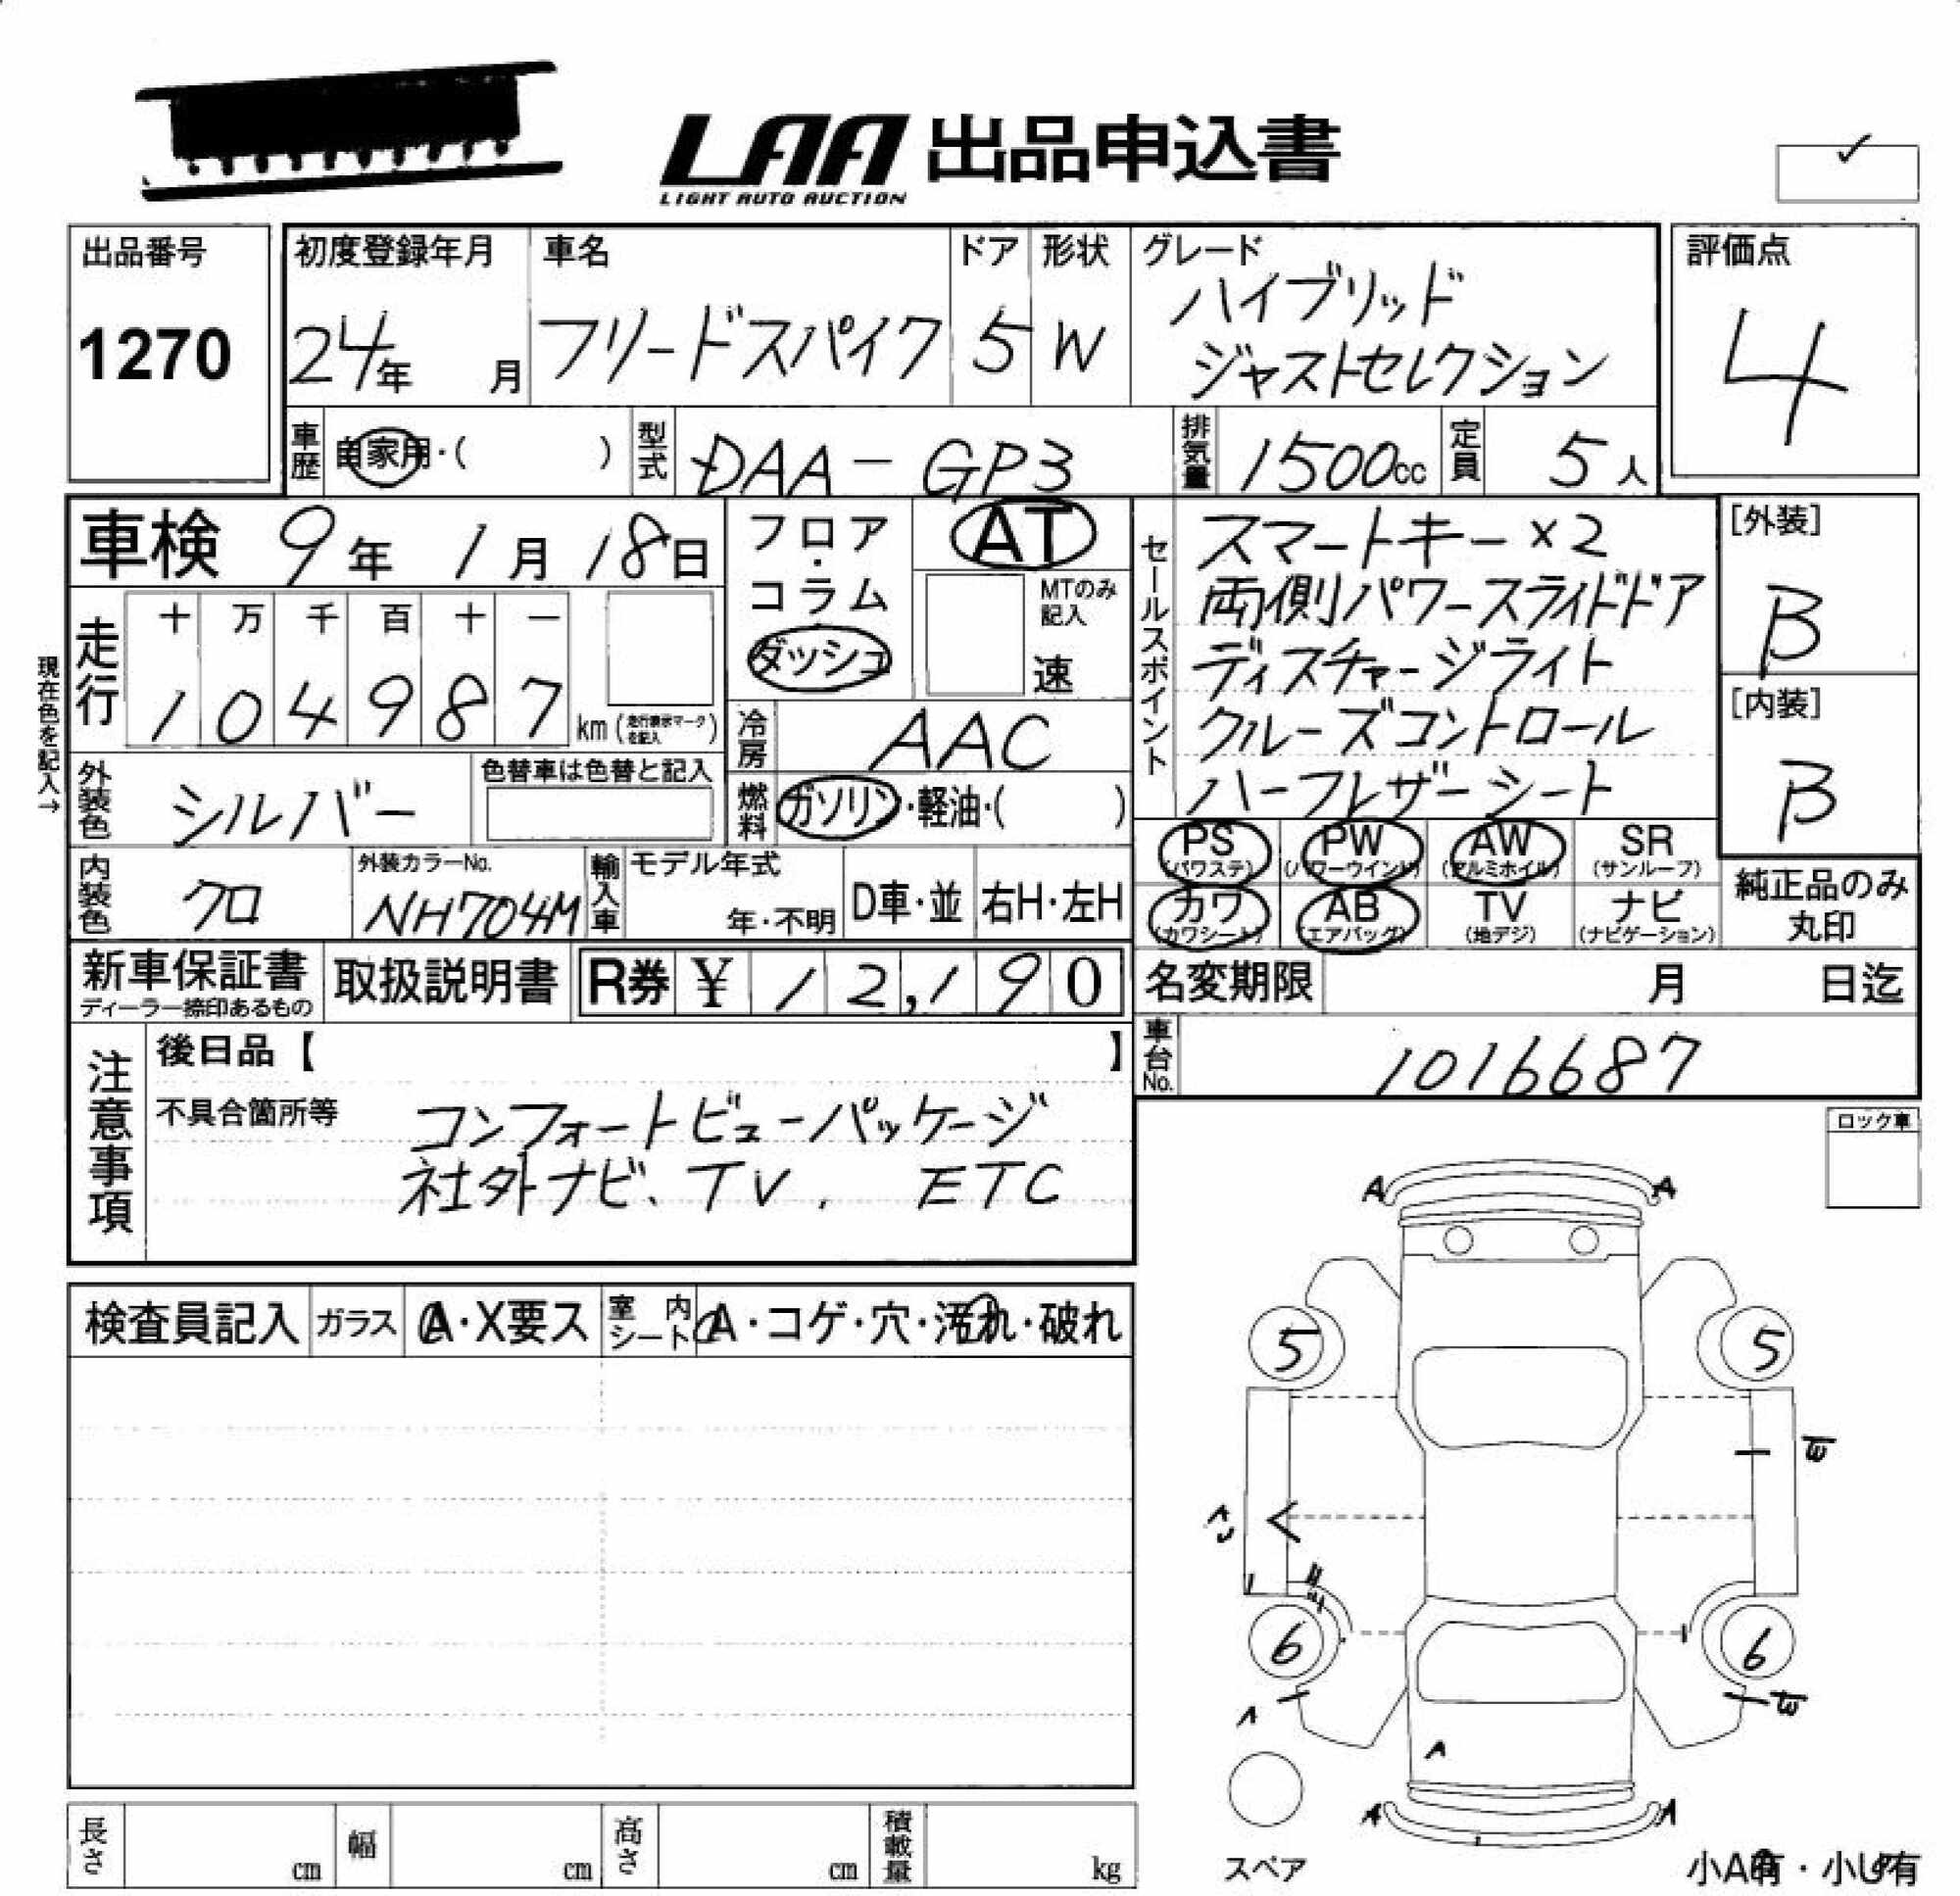 LAA 出品申込書
LIGHT AUTO AUCTION
✓
出品番号
1270
初度登録年月
24年 月
車名
フリードスパイク
ドア
5
形状
W
グレード
ハイブリッド
ジャストセレクション
評価点
4
車歴
自家用・( )
型式
DAA-GP3
排気量
1500cc
定員
5人
車検 9年 1月 18日
フロア・コラム
ダッシュ
AT
MTのみ記入
速
セールスポイント
スマートキー×2
両側パワースライドドア
ディスチャージライト
クルーズコントロール
ハーフレザーシート
[外装]
B
[内装]
B
現在色を記入→
走行
十 万 千 百 十 一
1 0 4 9 8 7 km (走行表示マークを記入)
冷房
AAC
外装色
シルバー
色替車は色替と記入
燃料
ガソリン・軽油・( )
PS (パワステ)
PW (パワーウインド)
AW (アルミホイル)
SR (サンルーフ)
カワ (カワシート)
AB (エアバッグ)
TV (地デジ)
ナビ (ナビゲーション)
純正品のみ
丸印
内装色
クロ
外装カラーNo.
NH704M
輸入車
モデル年式
年・不明
D車・並
右H・左H
新車保証書
ディーラー捺印あるもの
取扱説明書
R券 ¥ 12,190
名変期限 月 日迄
車台No.
1016687
注意事項
後日品【 】
不具合箇所等
コンフォートビューパッケージ
社外ナビ、TV, ETC
ロック車
検査員記入
ガラス
A・X要ス
室内シート
A・コゲ・穴・汚れ・破れ
A
A
5
5
6
6
A
A
A
スペア
小A有・小U有
長さ cm
幅 cm
高さ cm
積載量 kg